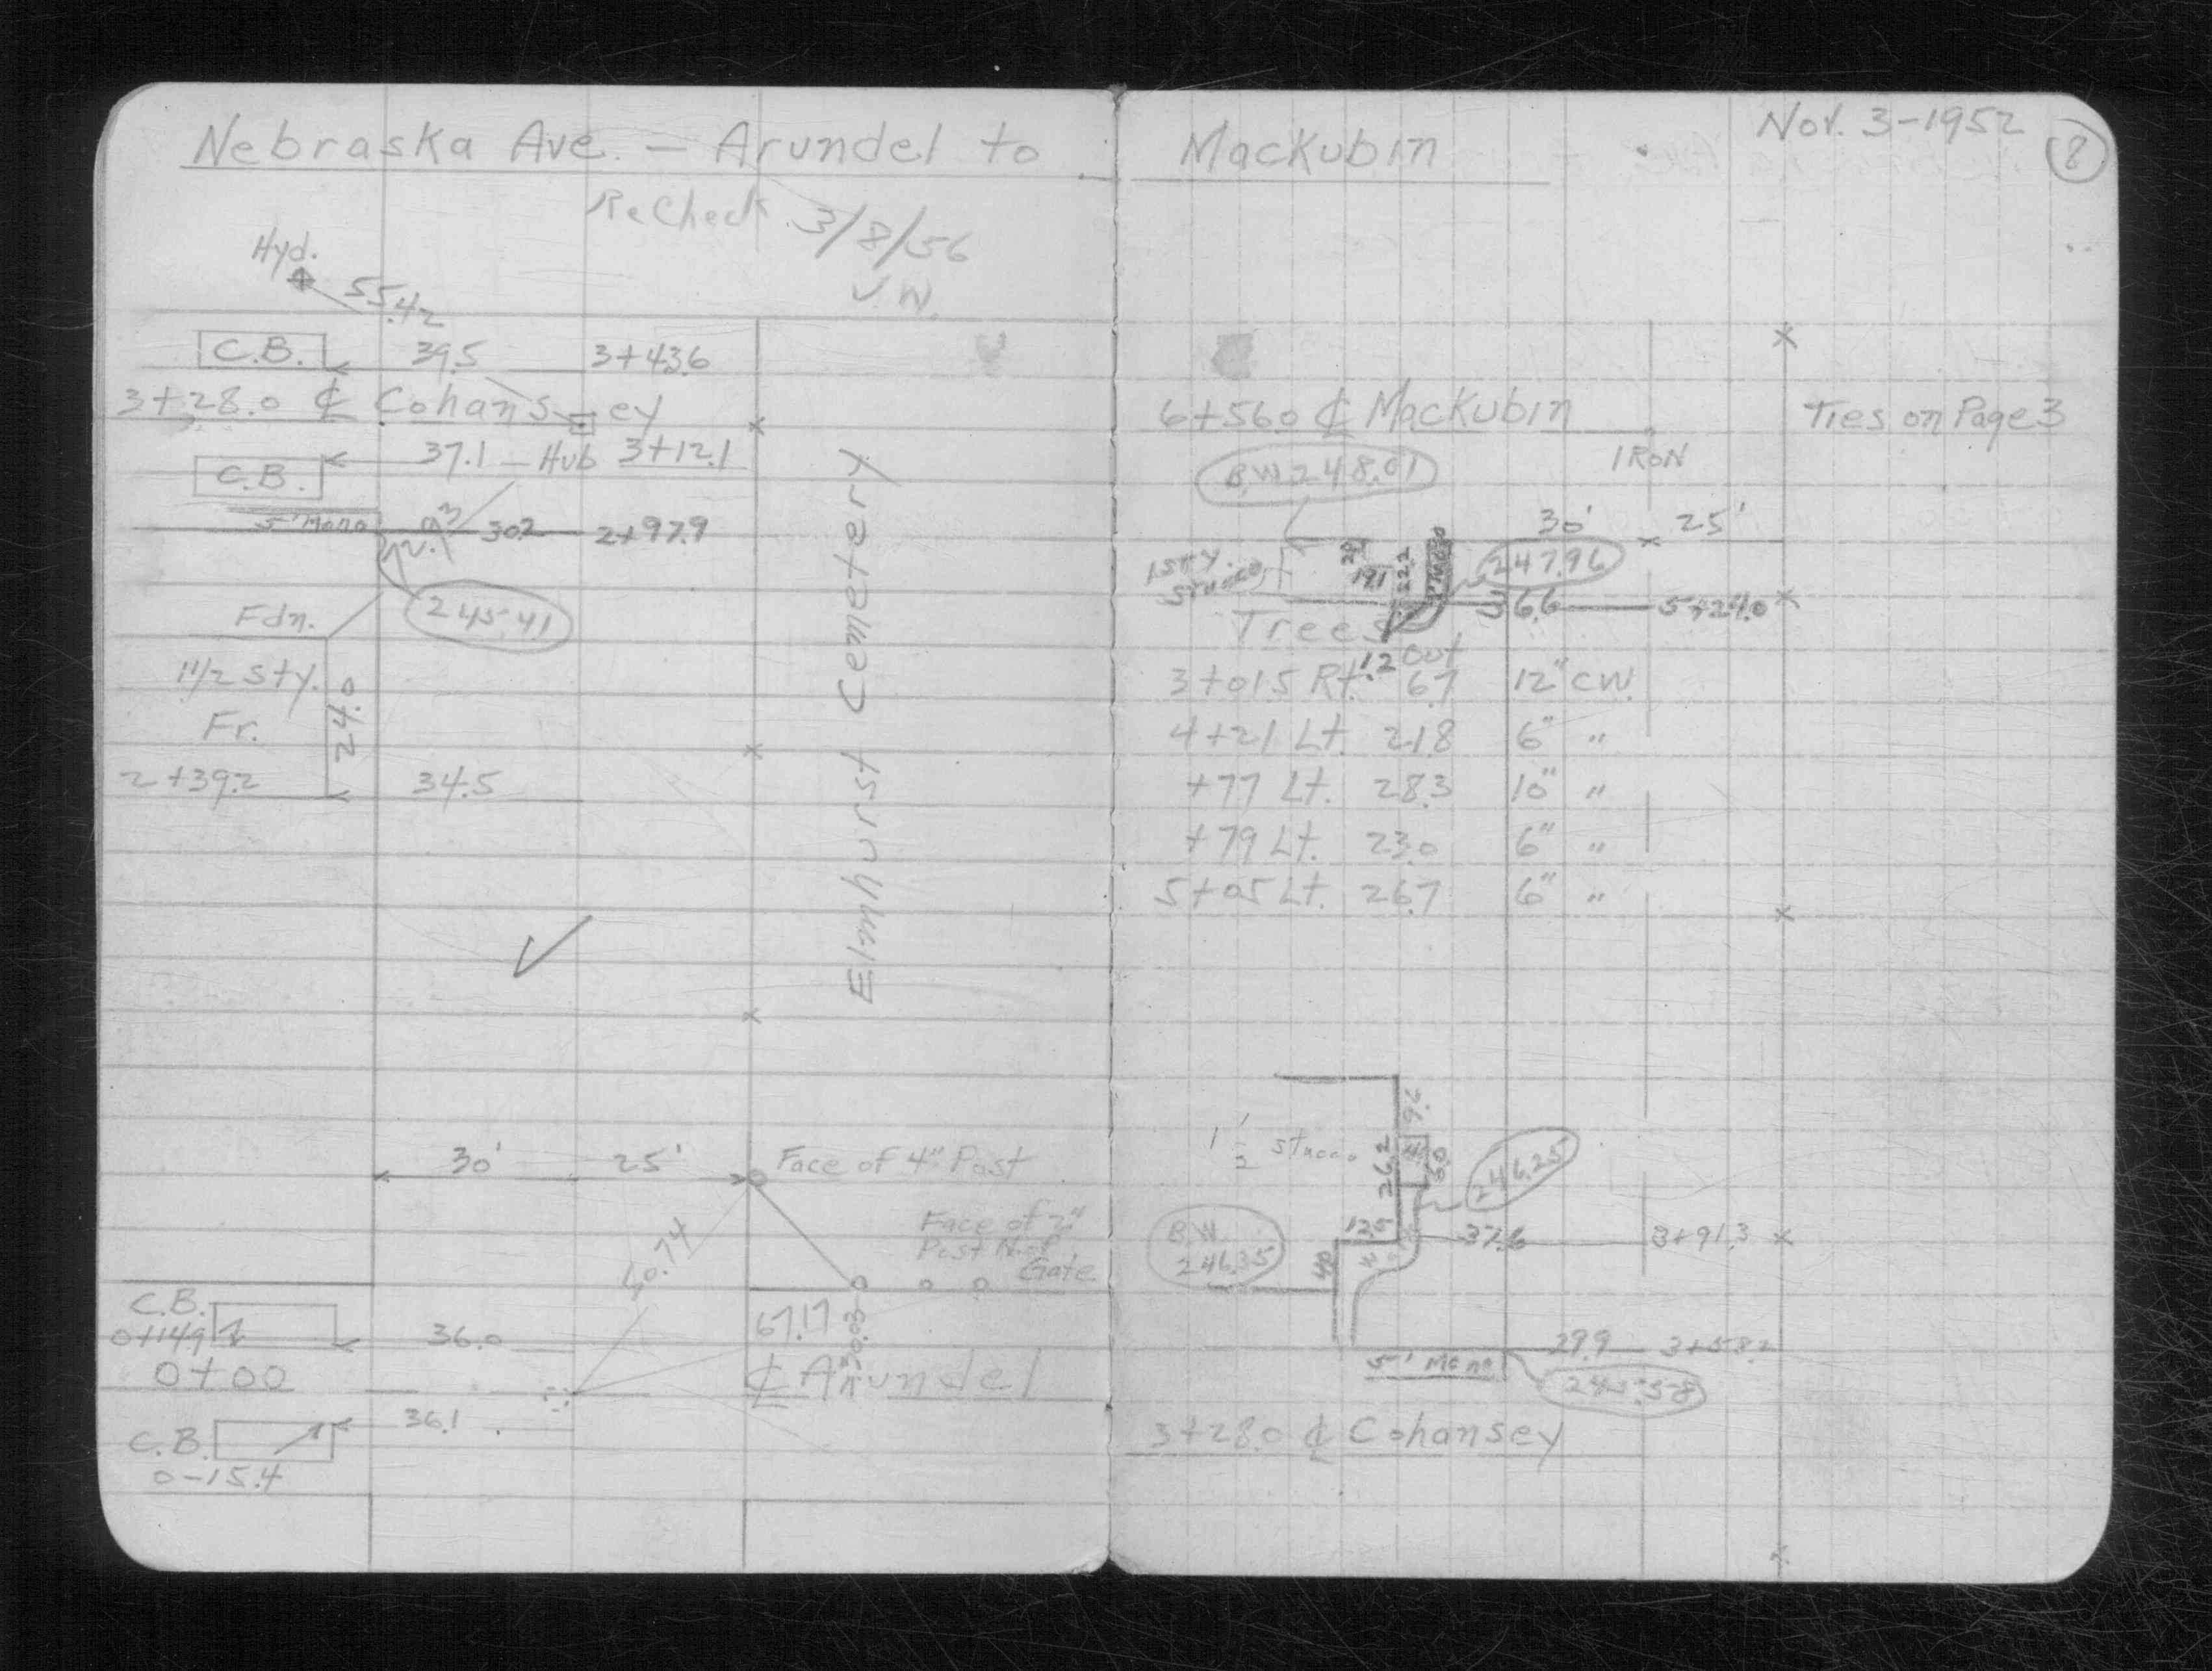 Nebraska Ave. – Arundel to Mackubin
Nov. 3-1952
8
ReCheck 3/8/56
J.W.
Hyd.
55.42
C.B. 39.5 3+43.6
3+28.0 ℄ Cohansey
C.B. 37.1 Hub 3+12.1
5' Mono 30.2 2+97.9
245.41
Fdn.
1 1/2 Sty.
Fr.
24.0
2+39.2 34.5
Elmhurst Cemetery
30' 25' Face of 4" Post
Face of 2"
Post N. of
Gate
60.74
C.B.
0+14.9 36.0 67.17
0+00 ℄ Arundel
36.1
C.B.
0-15.4
6+56.0 ℄ Mackubin Ties on Page 3
IRON
B.W. 248.01
30' 25'
1 Sty.
Stucco
19.1 22.2
247.96
36.6 5+24.0
Trees
1.2 Out
3+01.5 Rt. 6.7 12" CW.
4+21 Lt. 21.8 6" "
+77 Lt. 28.3 10" "
+79 Lt. 23.0 6" "
5+05 Lt. 26.7 6" "
9.6
1 1/2 Stucco
26.2
6.0
246.25
B.W.
246.35
12.5 37.6 3+91.3
29.9 3+58.2
5' Mono
245.58
3+28.0 ℄ Cohansey